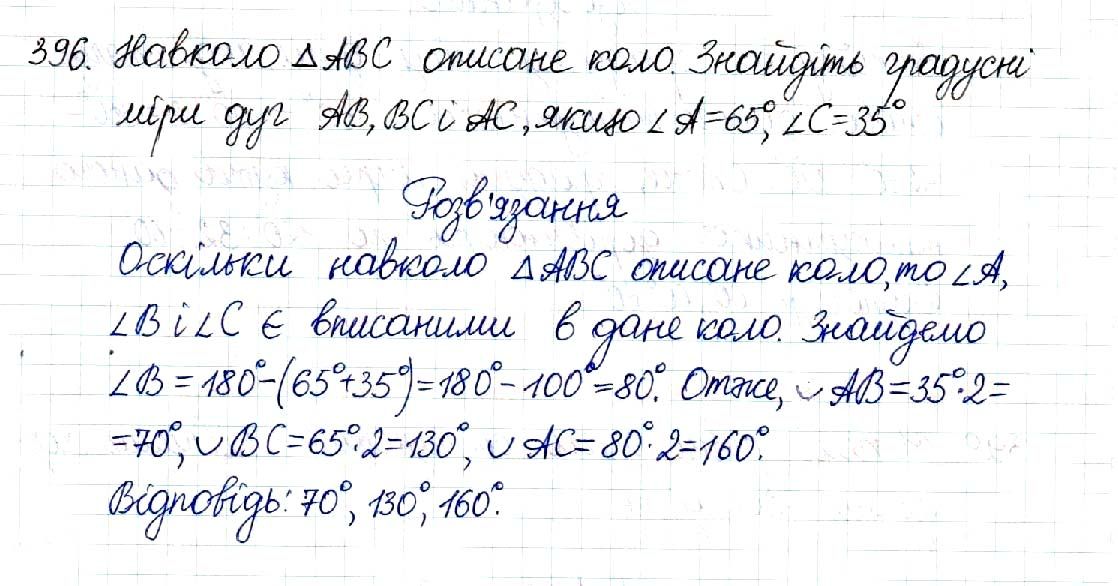 396. Навколо △ABC описане коло. Знайдіть градусні
міри дуг AB, BC і AC, якщо ∠A=65°, ∠C=35°
Розв'язання
Оскільки навколо △ABC описане коло, то ∠A,
∠B і ∠C є вписаними в дане коло. Знайдемо
∠B = 180°-(65°+35°)=180°-100°=80°. Отже, ◡AB=35°·2=
=70°, ◡BC=65°·2=130°, ◡AC=80°·2=160°.
Відповідь: 70°, 130°, 160°.